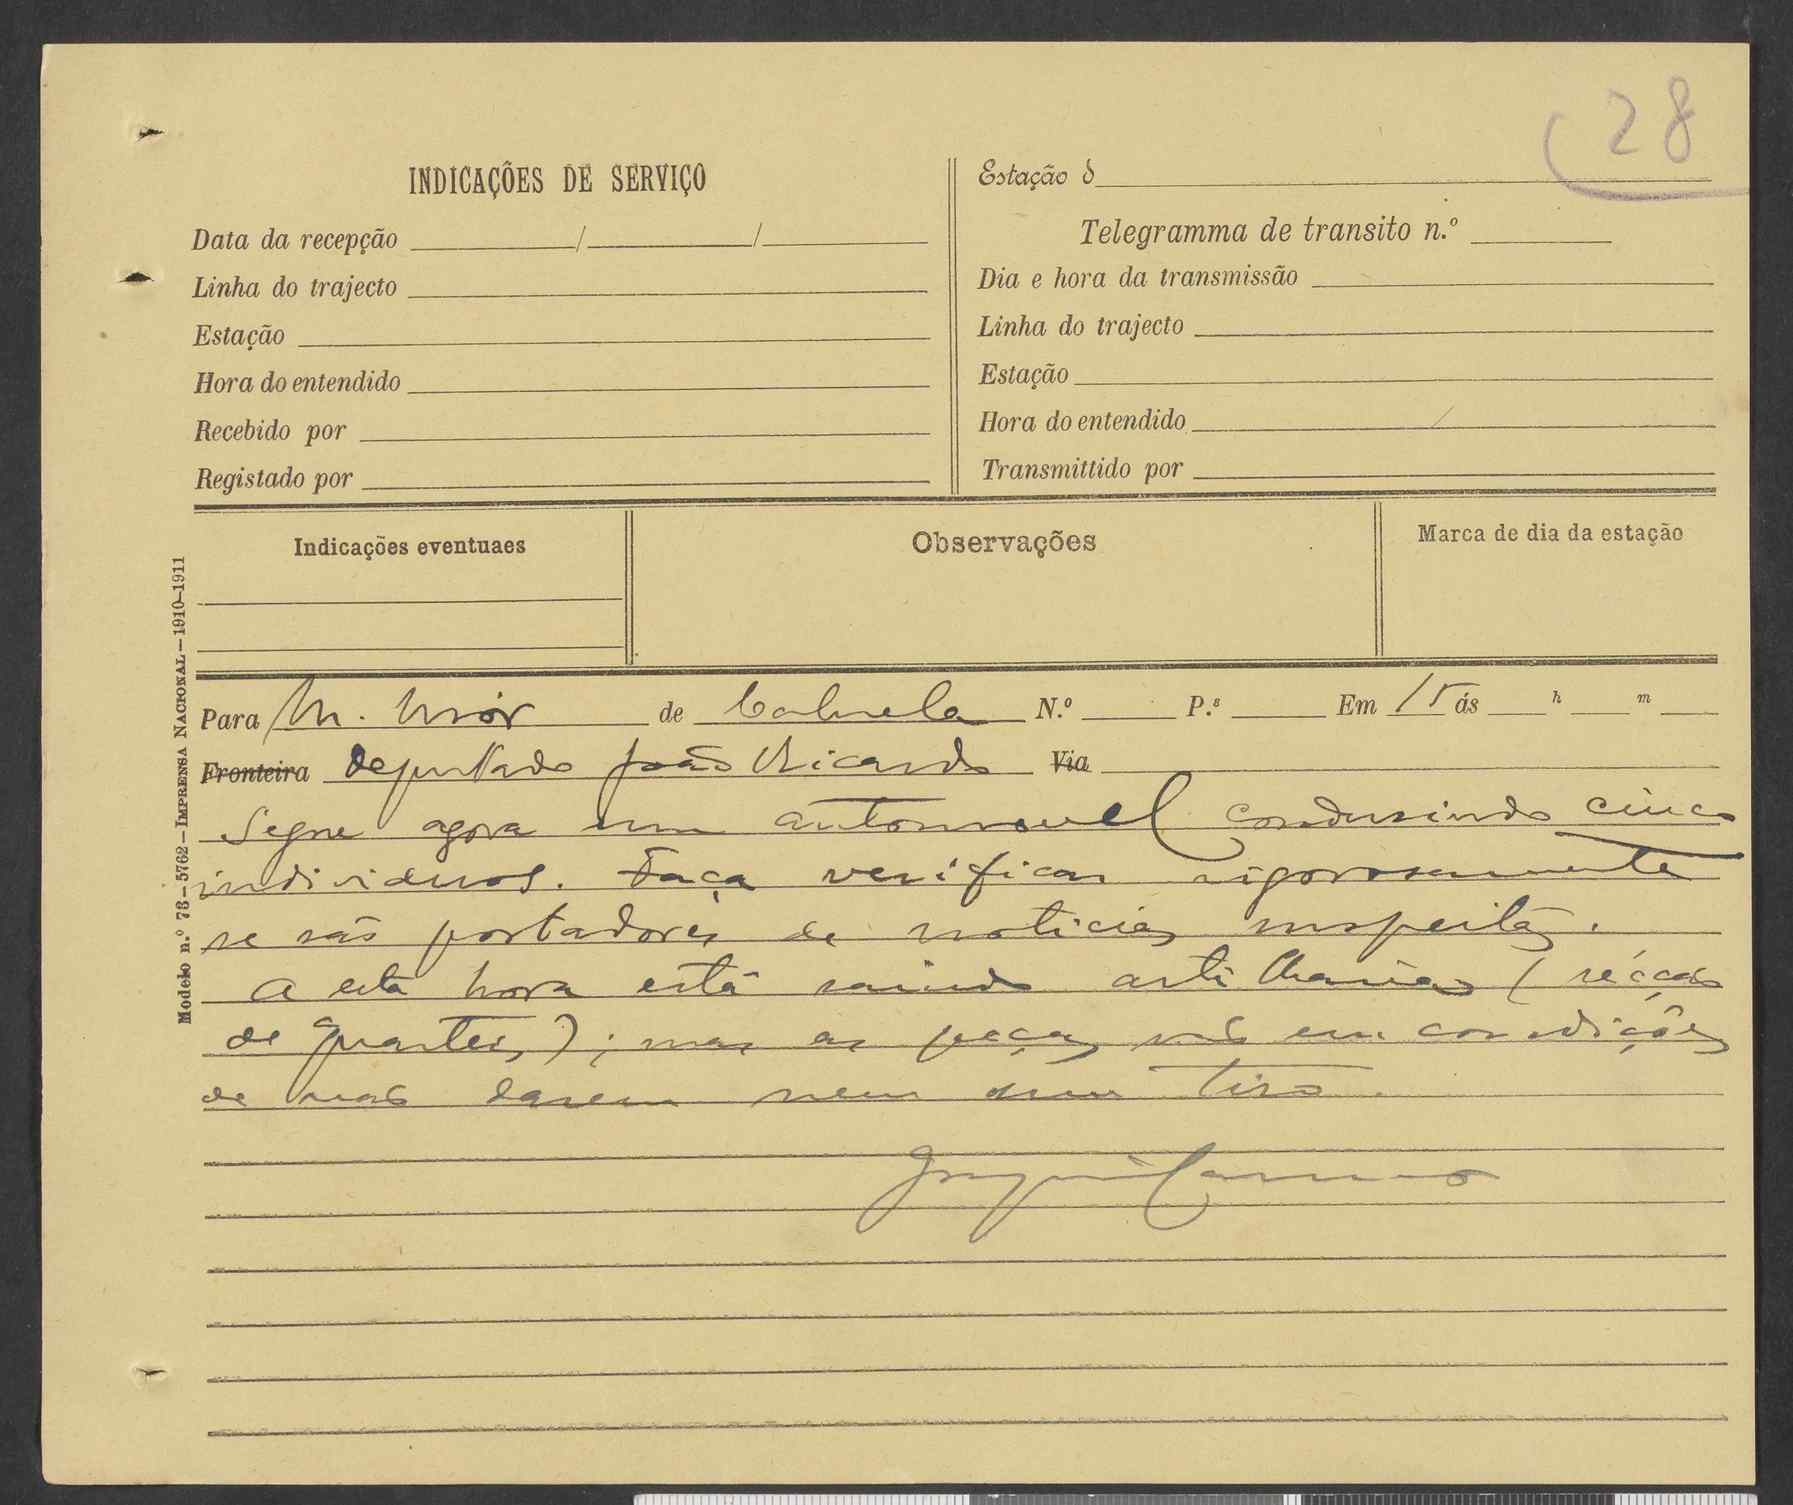 28
INDICAÇÕES DE SERVIÇO
Data da recepção / /
Linha do trajecto
Estação
Hora do entendido
Recebido por
Registado por
Estação d
Telegramma de transito n.º
Dia e hora da transmissão
Linha do trajecto
Estação
Hora do entendido
Transmittido por
Indicações eventuaes
Observações
Marca de dia da estação
Modelo n.º 73—5762—IMPRENSA NACIONAL—1910-1911
Para M. Mór de Cabuela N.º P.s Em 15 ás h m
Fronteira Deputado João Ricardo Via
Segue agora um automovel condusindo cinco
individuos. Faça verificar rigorosamente
se são portadores de noticias suspeitas.
A esta hora está saindo artilharia (
de quarteis); mas as peças vão em condições
de não darem nem um tiro.